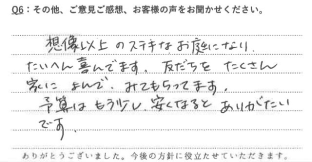 Q6：その他、ご意見ご感想、お客様の声をお聞かせください。
想像以上のステキなお庭になり、
たいへん喜んでます。友だちを たくさん
家に よんで、みてもらってます。
予算は もう少し 安くなると ありがたい
です。
ありがとうございました。今後の方針に役立たせていただきます。